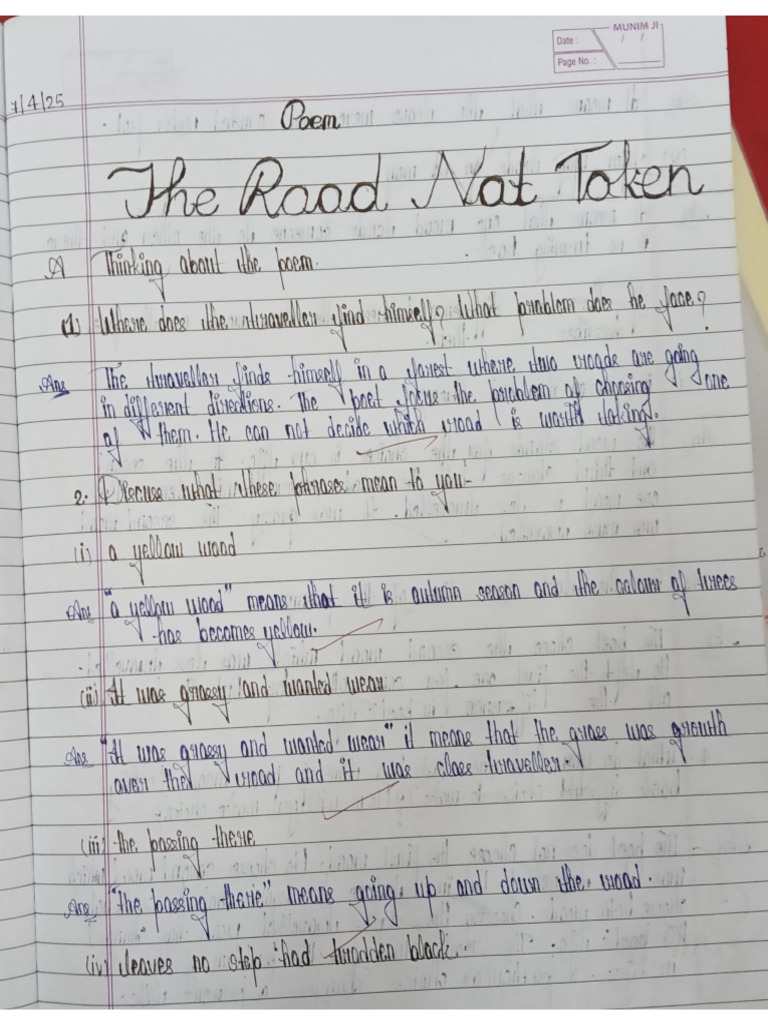 MUNIM JI
Date : / /
Page No. :
7/4/25
Poem
The Road Not Taken
A Thinking about the poem.
(1) Where does the traveller find himself? What problem does he face?
Ans The traveller finds himself in a forest where two roads are going
in different directions. The poet faces the problem of choosing one
of them. He can not decide which road is worth taking.
2. Discuss what these phrases mean to you-
(i) a yellow wood
Ans "a yellow wood" means that it is autumn season and the colour of trees
has becomes yellow.
(ii) It was grassy and wanted wear
Ans "It was grassy and wanted wear" it means that the grass was growth
over the road and it was class traveller.
(iii) the passing there
Ans "the passing there" means going up and down the road.
(iv) leaves no step had trodden black.